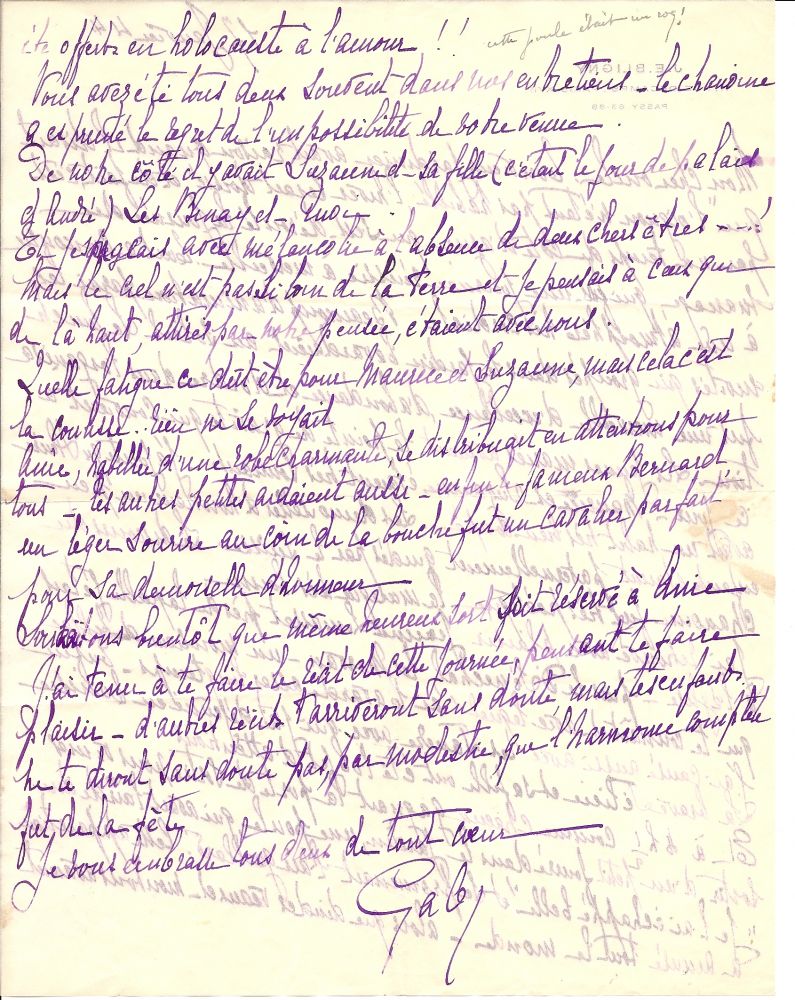 été offerts en holocauste à l'amour !! cette poule était un coq!
Vous avez été tous deux souvent dans nos entretiens - le chanoine
a exprimé le regret de l'impossibilité de votre venue.
De notre côté il y avait Suzanne et sa fille (c'était le jour de palais
d'André) Les Binay et moi.
Et je songeais avec mélancolie à l'absence de deux chers êtres ---!
Mais le ciel n'est pas si loin de la Terre et je pensais à ceux que
de là haut attirés par notre pensée, étaient avec nous.
Quelle fatigue ce dût être pour Maurice et Suzanne, mais cela c'est
la coulisse.. rien ne se voyait
Anie, habillée d'une robe charmante, se distribuait en attentions pour
tous - les autres petites aidaient aussi - enfin le fameux Bernard,
un léger sourire au coin de la bouche fut un cavalier parfait
pour sa demoiselle d'honneur
Souhaitons bientôt que même heureux sort soit réservé à Anie
J'ai tenu à te faire le récit de cette journée, pensant te faire
plaisir - d'autres récits t'arriveront sans doute mais tes enfants
ne te diront sans doute pas, par modestie, que l'harmonie complète
fut de la fête
Je vous embrasse tous deux de tout cœur
Gaby
J.E. BLIGNY
PASSY 63-88